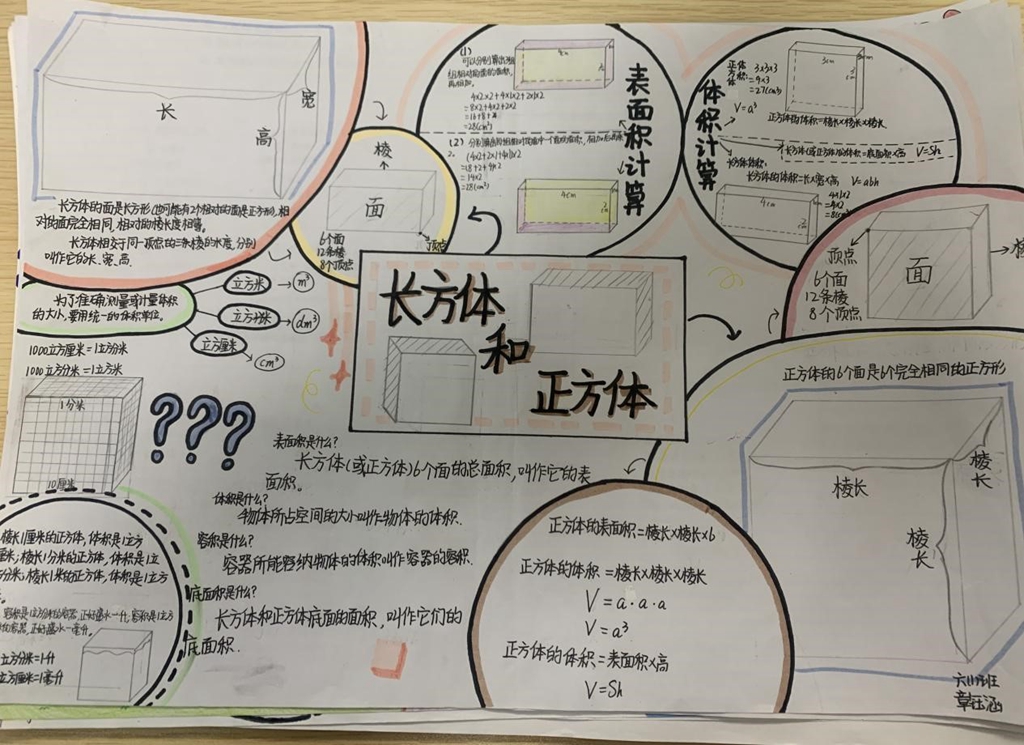 长
宽
高
长方体的面是长方形(也可能有2个相对的面是正方形),相
对的面完全相同,相对的棱长度相等。
长方体相交于同一顶点的三条棱的长度,分别
叫作它的长、宽、高.
棱
面
顶点
6个面
12条棱
8个顶点
(1)
4cm
4×2×2+4×1×2+2×1×2
=8×2+4×2+2×2
=28(cm²)
(2)
(4×2+2×1+4×1)×2
=14×2
=28(cm²)
4cm
表面积计算
体积计算
正方体
体积:
3×3×3
=9×3
=27(cm³)
V=a³
3cm
正方体的体积=棱长×棱长×棱长
长方体(或正方体)的体积=表面积×高 V=Sh
长方体的体积=长×宽×高 V=abh
4cm
4×1×2
=4×2
=8(cm³)
顶点
面
6个面
12条棱
8个顶点
为了准确测量或计量体积
的大小,要用统一的体积单位。
立方米
m³
立方分米
dm³
立方厘米
cm³
1000立方厘米=1立方分米
1000立方分米=1立方米
1分米
10厘米
???
长方体
和
正方体
表面积是什么?
长方体(或正方体)6个面的总面积,叫作它的表
面积。
体积是什么?
物体所占空间的大小叫作物体的体积.
容积是什么?
容器所能容纳物体的体积叫作容器的容积.
底面积是什么?
长方体和正方体底面的面积,叫作它们的
底面积.
棱长1厘米的正方体,体积是1立方
厘米;棱长1分米的正方体,体积是1立
方分米;棱长1米的正方体,体积是1立方
容积是1立方分米的容器,正好盛水一升;容积是1立方
厘米的容器,正好盛水一毫升。
立方分米=1升
立方厘米=1毫升
正方体的表面积=棱长×棱长×6
正方体的体积=棱长×棱长×棱长
V=a·a·a
V=a³
正方体的体积=表面积×高
V=Sh
正方体的6个面是6个完全相同的正方形
棱长
棱长
棱长
章钰涵